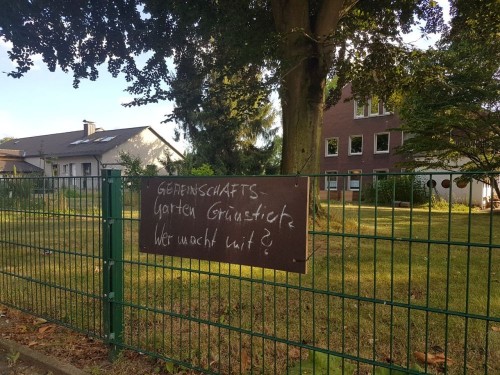 GEMEINSCHAFTS-
Garten Grünstich.
Wer macht mit?